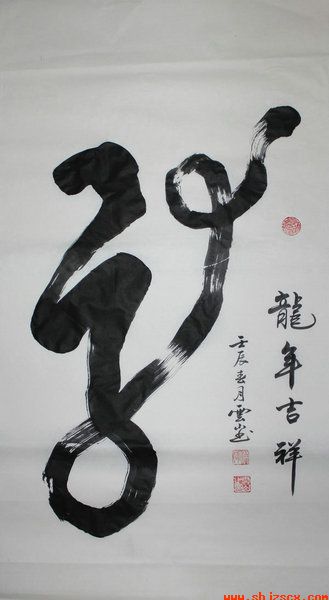 龍
龍年吉祥
壬辰春月雲山書
www.shjzscx.com